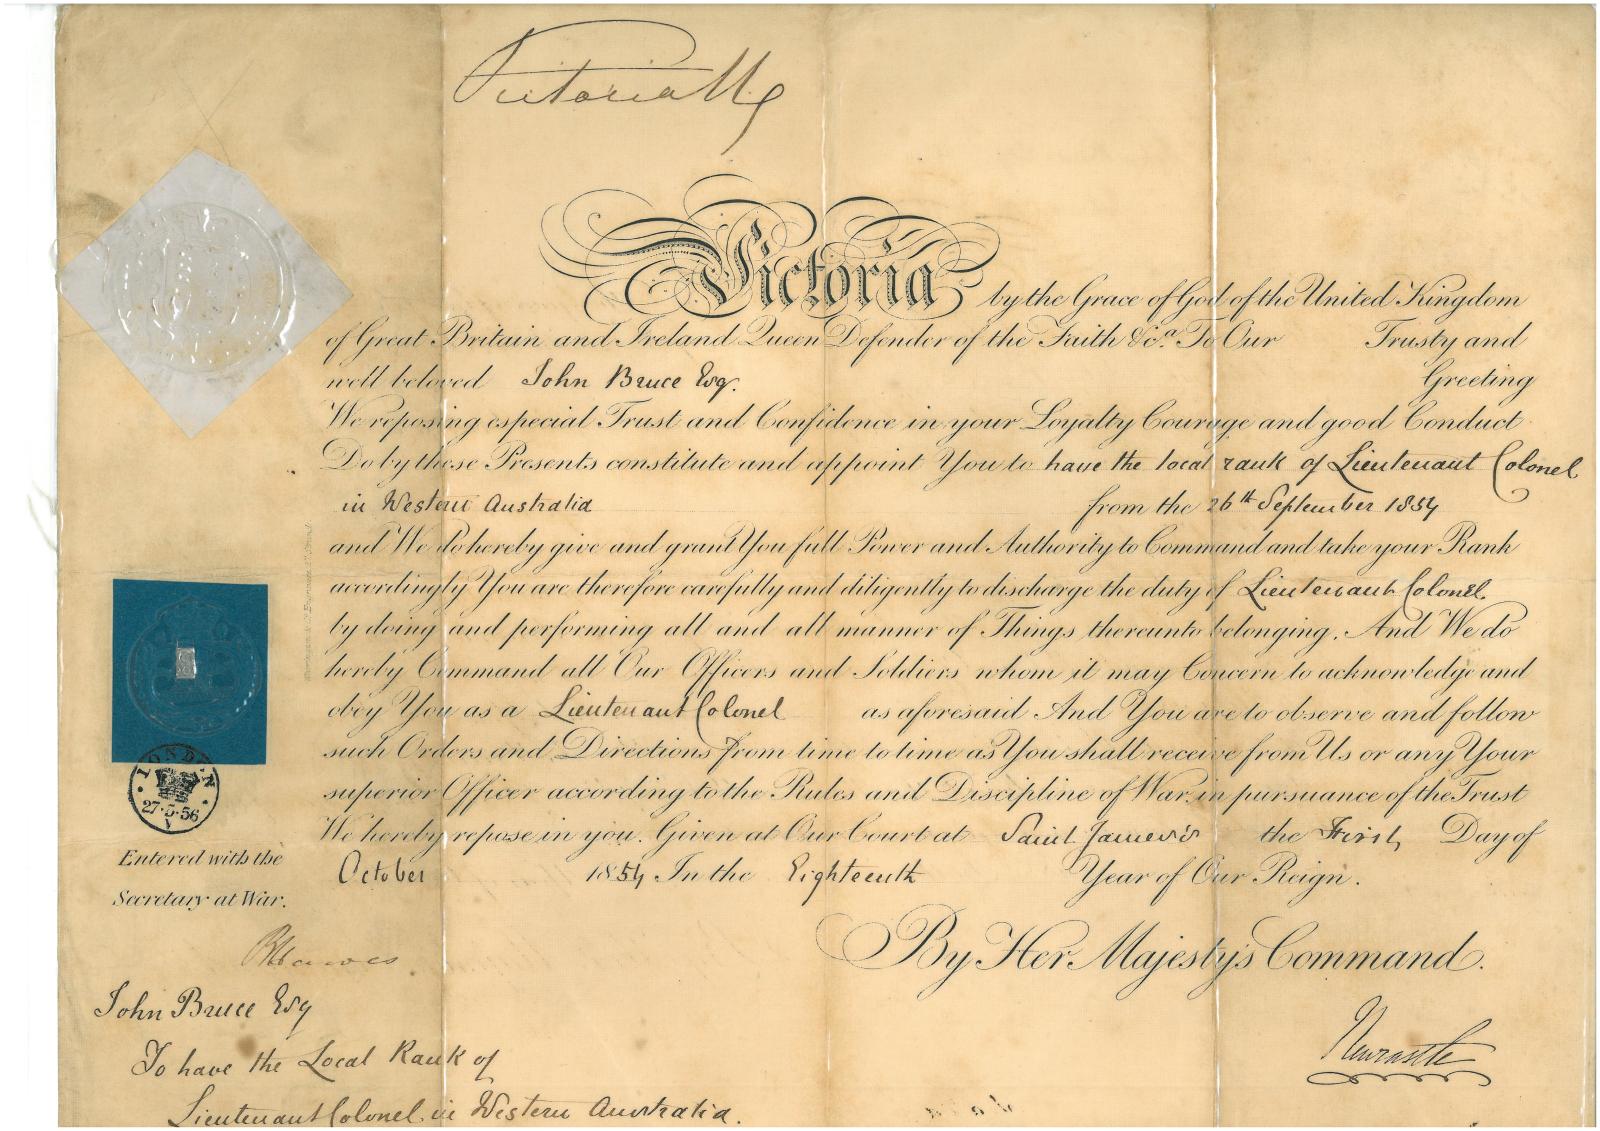 Victoria R
Victoria by the Grace of God of the United Kingdom
of Great Britain and Ireland Queen Defender of the Faith &c.a To Our Trusty and
well beloved John Bruce Esq. Greeting
We reposing especial Trust and Confidence in your Loyalty Courage and good Conduct
Do by these Presents constitute and appoint You to have the local rank of Lieutenant Colonel
in Western Australia from the 26th September 1854
and We do hereby give and grant You full Power and Authority to Command and take your Rank
accordingly You are therefore carefully and diligently to discharge the duty of Lieutenant Colonel
by doing and performing all and all manner of Things thereunto belonging. And We do
hereby Command all Our Officers and Soldiers whom it may Concern to acknowledge and
obey You as a Lieutenant Colonel as aforesaid And You are to observe and follow
such Orders and Directions from time to time as You shall receive from Us or any Your
superior Officer according to the Rules and Discipline of War, in pursuance of the Trust
We hereby repose in you. Given at Our Court at Saint James's the First Day of
October 1854 In the Eighteenth Year of Our Reign.
By Her Majesty's Command.
Newcastle
LONDON
27·5·56
V
Entered with the
Secretary at War.
John Bruce Esq
To have the Local Rank of
Lieutenant Colonel in Western Australia.